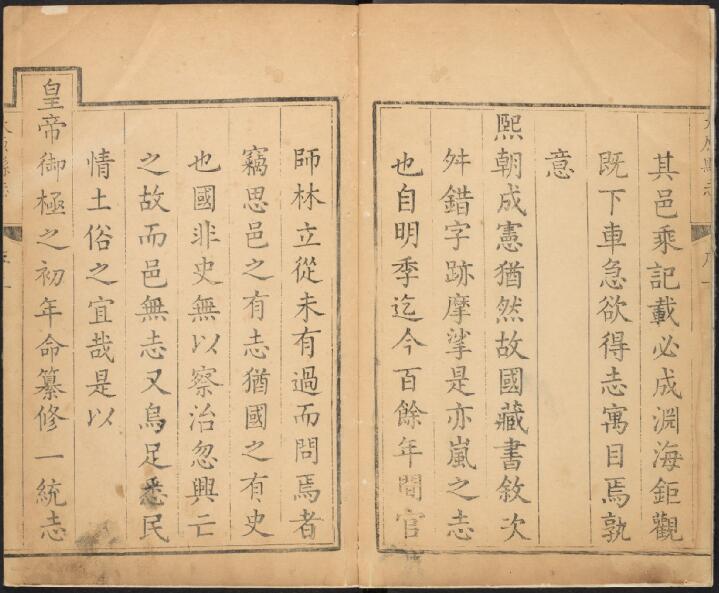 其邑乘記載必成淵海鉅觀
既下車急欲得志寓目焉孰
意
熙朝成憲猶然故國藏書敘次
舛錯字跡摩挲是亦嵐之志
也自明季迄今百餘年間官
師林立從未有過而問焉者
竊思邑之有志猶國之有史
也國非史無以察治忽興亡
之故而邑無志又烏足悉民
情土俗之宜哉是以
皇帝御極之初年命纂修一統志